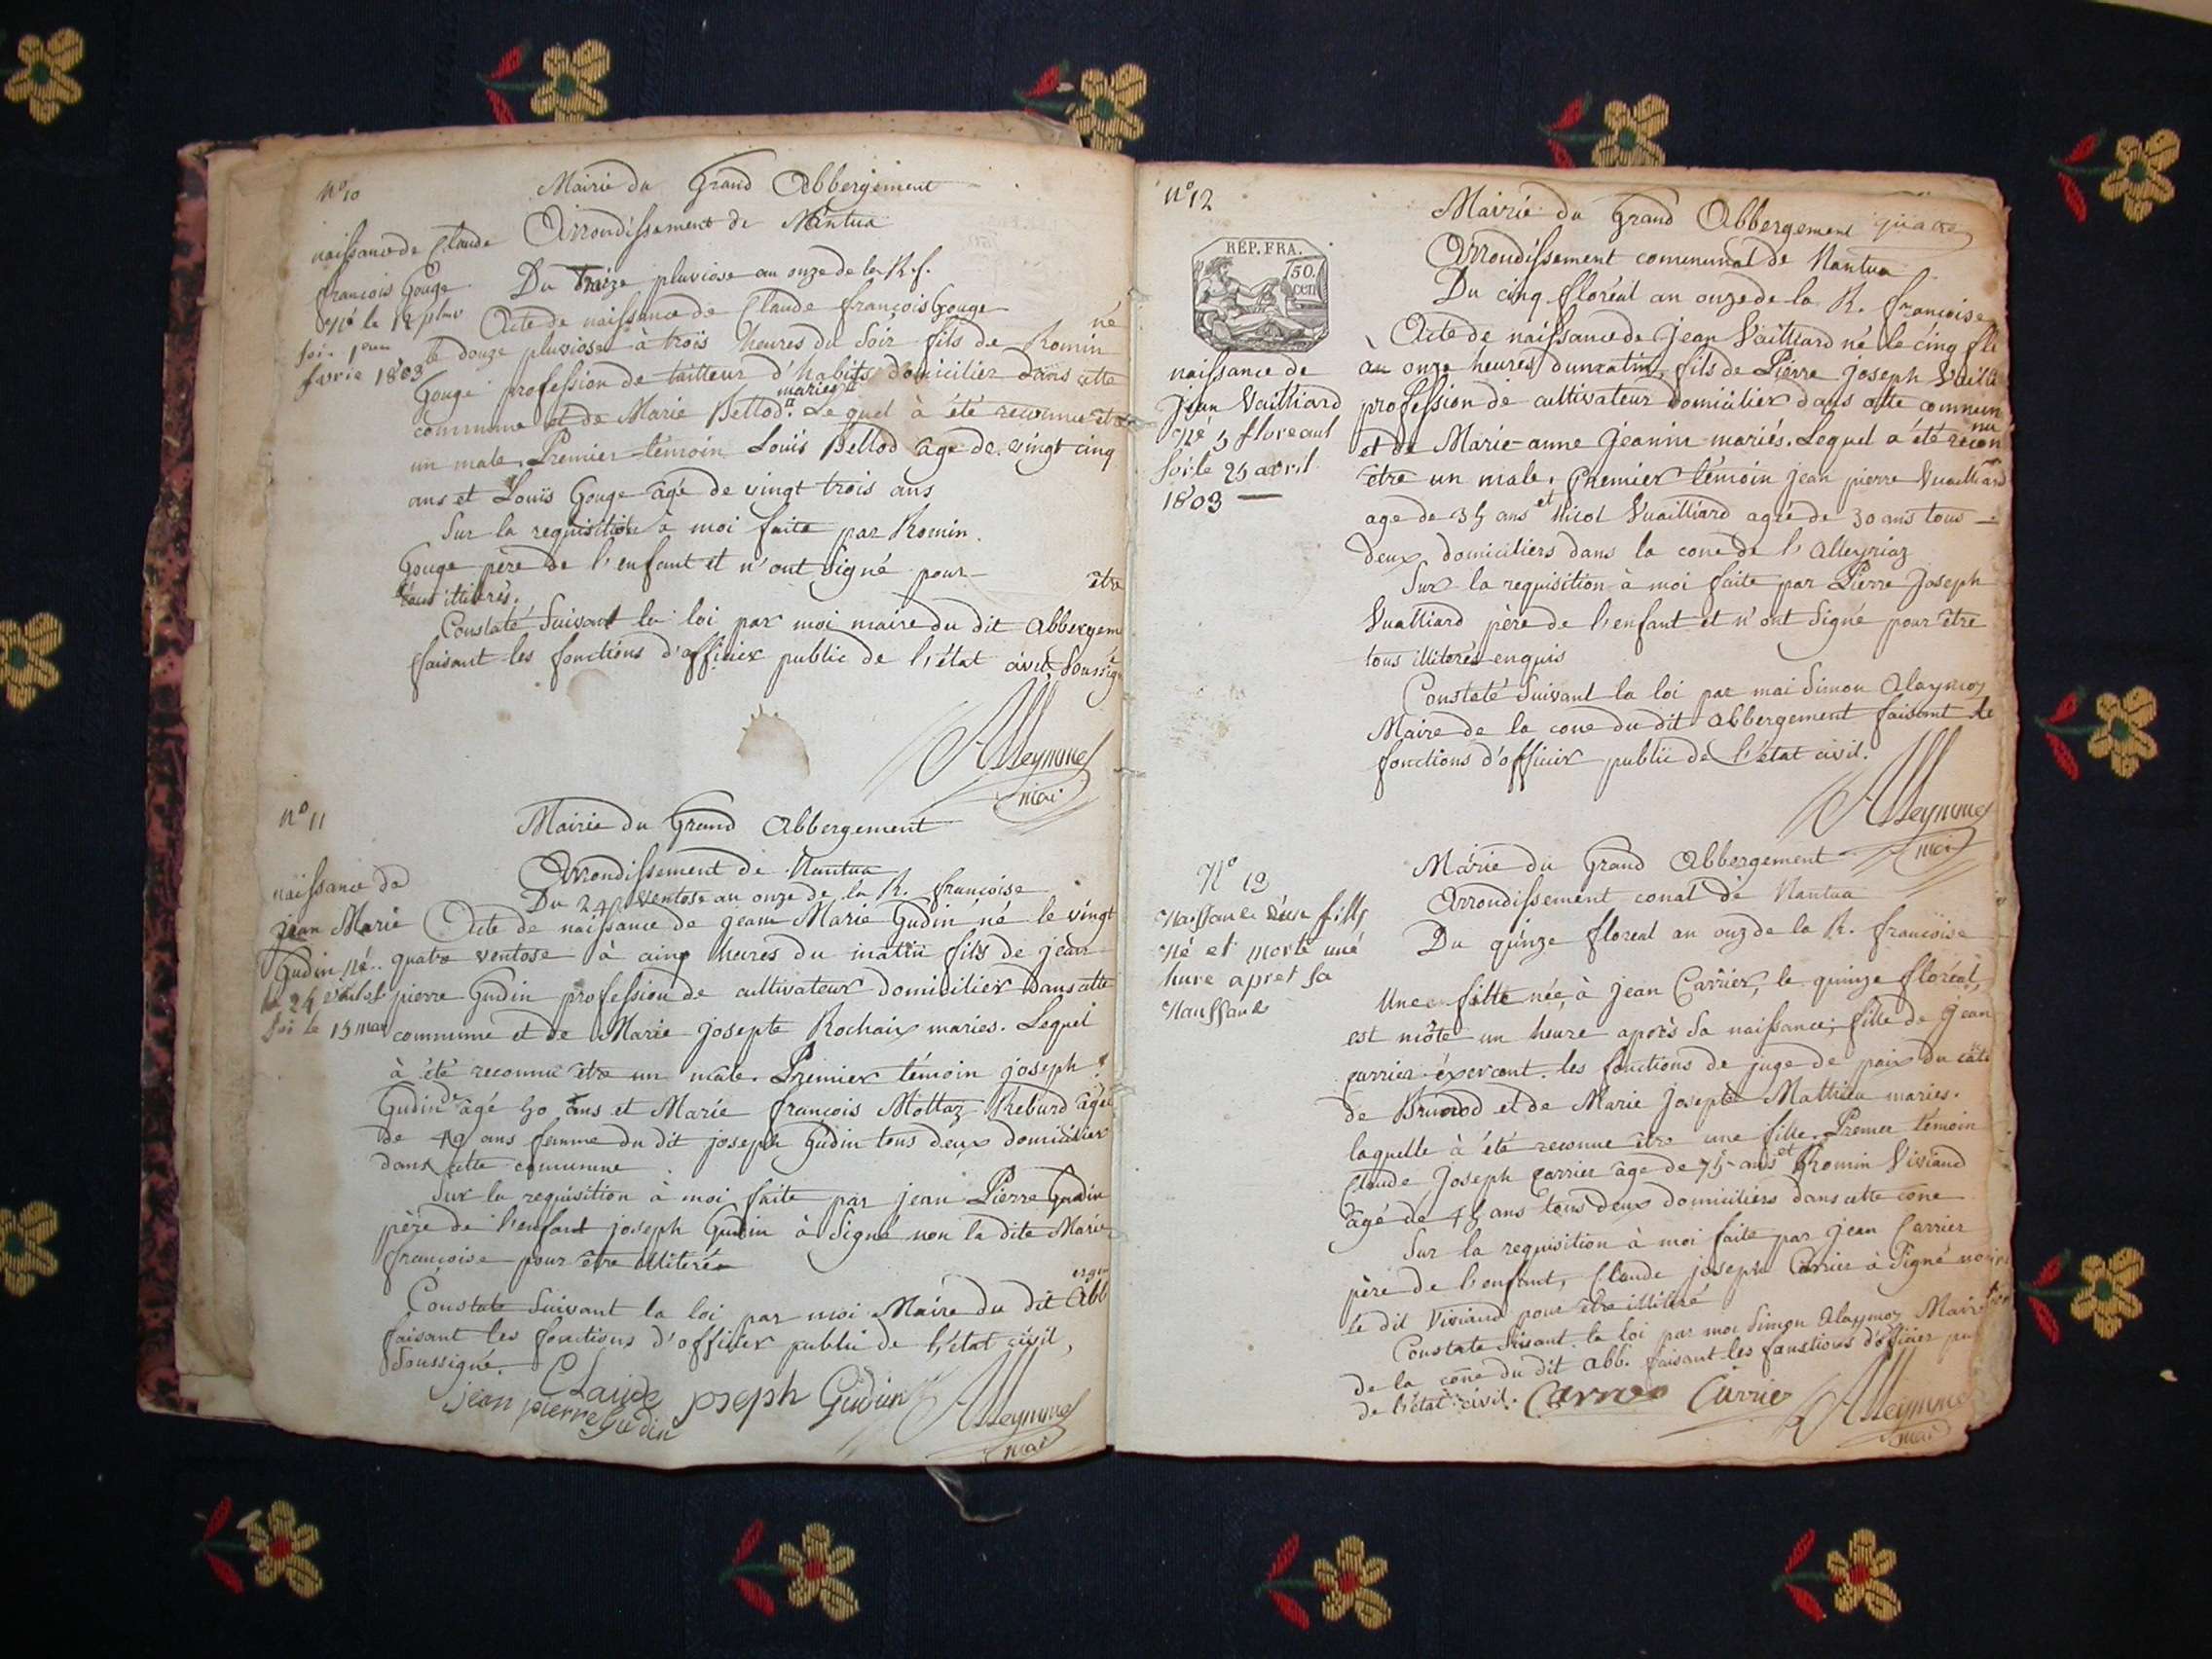 n° 10
Mairie du Grand Abbergement
Arrondissement de Nantua
naissance de Claude
françois Gouge
né le 12 pluv
soi. 1er
fevrie 1803
Du treize pluviose an onze de la R. f.
Acte de naissance de Claude françois Gouge né
le douze pluviose à trois heures du soir fils de Romin
Gouge profession de tailleur d'habits domicilier dans cette
commune et de Marie Bellod mariés. Lequel à été reconnu etre
un male. Premier témoin Louis Bellod age de vingt cinq
ans et Louis Gouge agé de vingt trois ans
Sur la requisition à moi faite par Romin
Gouge père de l'enfant et n'ont signé pour être
tous illiterés.
Constaté suivant la loi par moi maire du dit abbergem
faisant les fonctions d'officier public de l'état civil soussigné
Alleymoz
mai
n° 11
Mairie du Grand Abbergement
Arrondissement de Nantua
naissance de
jean Marie
Gudin né
le 24 vantos
soi le 15 mar
Du 24 ventose an onze de la R. françoise
Acte de naissance de jean Marie Gudin né le vingt
quatre ventose à cinq heures du matin fils de jean
pierre Gudin profession de cultivateur domicilier dans cette
commune et de Marie josepte Rochaix maries. Lequel
à été reconnu être un male. Premier témoin joseph
Gudin agé 50 ans et Marie françois Mottaz Reburd agée
de 49 ans femme du dit joseph Gudin tous deux domicilier
dans cette commune
Sur la requisition à moi faite par jean Pierre Gudin
père de l'enfant joseph Gudin à signé non la dite Marie
françoise pour être illiterée
Constate suivant la loi par moi Maire du dit Abbergem
faisant les fonctions d'officier public de l'état civil,
soussigné.
Claude joseph Gudin
jean pierre Gudin
Alleymoz
mai
n° 12
Mairie du Grand Abbergement quatre
REP. FRA.
50.
cen.
Arrondissement communal de Nantua
Du cinq floréal an onze de la R. françoise
naissance de
jean Vailliard
né 5 floreaul
soi le 25 avril
1803
Acte de naissance de jean Vailliard né le cinq flo
à onze heures du matin, fils de Pierre joseph Vailli
profession de cultivateur domicilier dans cette commun
et de Marie-anne jeanin mariés. Lequel a été reconnu
être un male. Premier témoin jean pierre Vuailliard
age de 35 ans et Nicol Vuailliard agée de 30 ans tous
deux domiciliers dans la cone de l'alleyriaz
Sur la requisition à moi faite par Pierre joseph
Vualliard père de l'enfant et n'ont signé pour être
tous illiterés enquis
Constaté suivant la loi par moi Simon Alaymoz
Maire de la cone du dit abbergement faisant le
fonctions d'officier public de l'état civil.
Alleymoz
mai
N° 13
Mairie du Grand Abbergement
Arrondissement conal de Nantua
Naissance d'une fille
Né et morte uné
hure apret sa
Naissance
Du quinze floreal an onze de la R. françoise
Une fille née à jean Carrier, le quinze floréal,
est môte un heure après sa naissance; fille de jean
carrier éxercant les fonctions de juge de paix du
de Brunod et de Marie josepte Mathieu maries.
laquelle à été reconue être une fille. Premier témoin
Claude joseph Carrier age de 75 ans et Romin Viviand
agé de 45 ans tous deux domiciliers dans cette cone
Sur la requisition à moi faite par jean Carrier
père de l'enfant, Claude joseph Carrier à signé non
le dit Viviand pour être illiteré
Constate suivant la loi par moi Simon Alaymoz Maire
de la cone du dit abb. faisant les fonctions d'officier pu
de l'état civil. Carrier Carrier
Alleymoz
mai